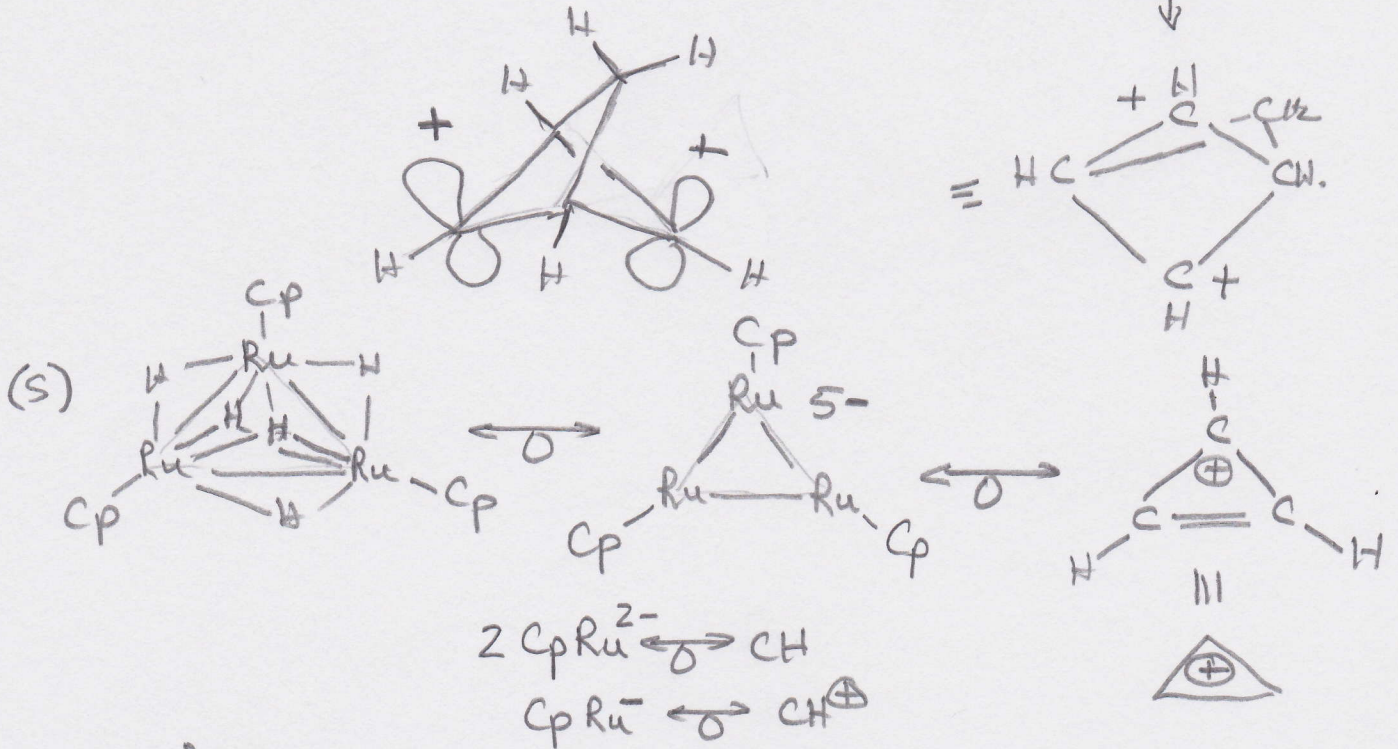 H
H
H
+
+
H
H
H
↓
+ H
C - CH2
≡ HC
CH.
C +
H
(5)
Cp
H Ru H
H H
Ru Ru
Cp H Cp
Cp
Ru 5-
Ru Ru
Cp Cp
H
C
⊕
C C
H H
|||
⊕
2 CpRu2- ⟷ CH
CpRu- ⟷ CH⊕